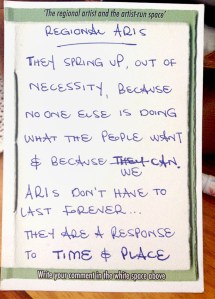 'The regional artist and the artist-run space'
REGIONAL ARIS
THEY SPRING UP, OUT OF
NECESSITY, BECAUSE
NO ONE ELSE IS DOING
WHAT THE PEOPLE WANT
& BECAUSE THEY CAN.
WE
ARIS DON'T HAVE TO
LAST FOREVER...
THEY ARE A RESPONSE
TO TIME & PLACE
Write your comment in the white space above